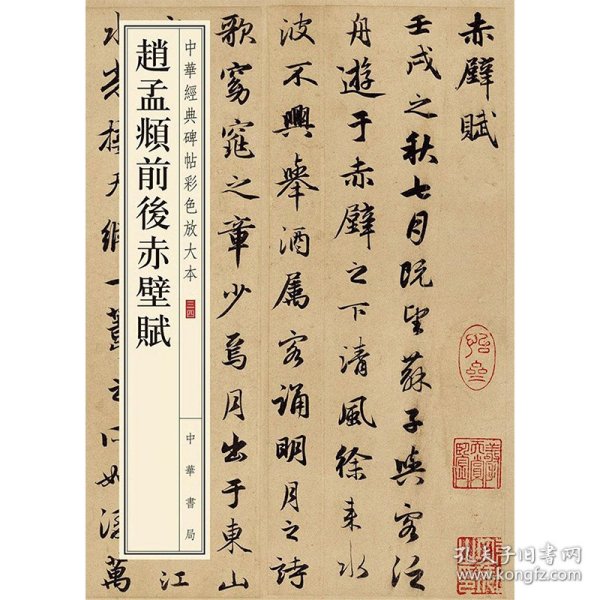 赤壁賦
壬戌之秋七月既望蘇子與客泛
舟遊于赤壁之下清風徐来水
波不興舉酒屬客誦明月之詩
歌窈窕之章少焉月出于東山
江
萬
中華經典碑帖彩色放大本
三四
趙孟頫前後赤壁賦
中華書局
孔夫子旧书网
www.kongfz.com